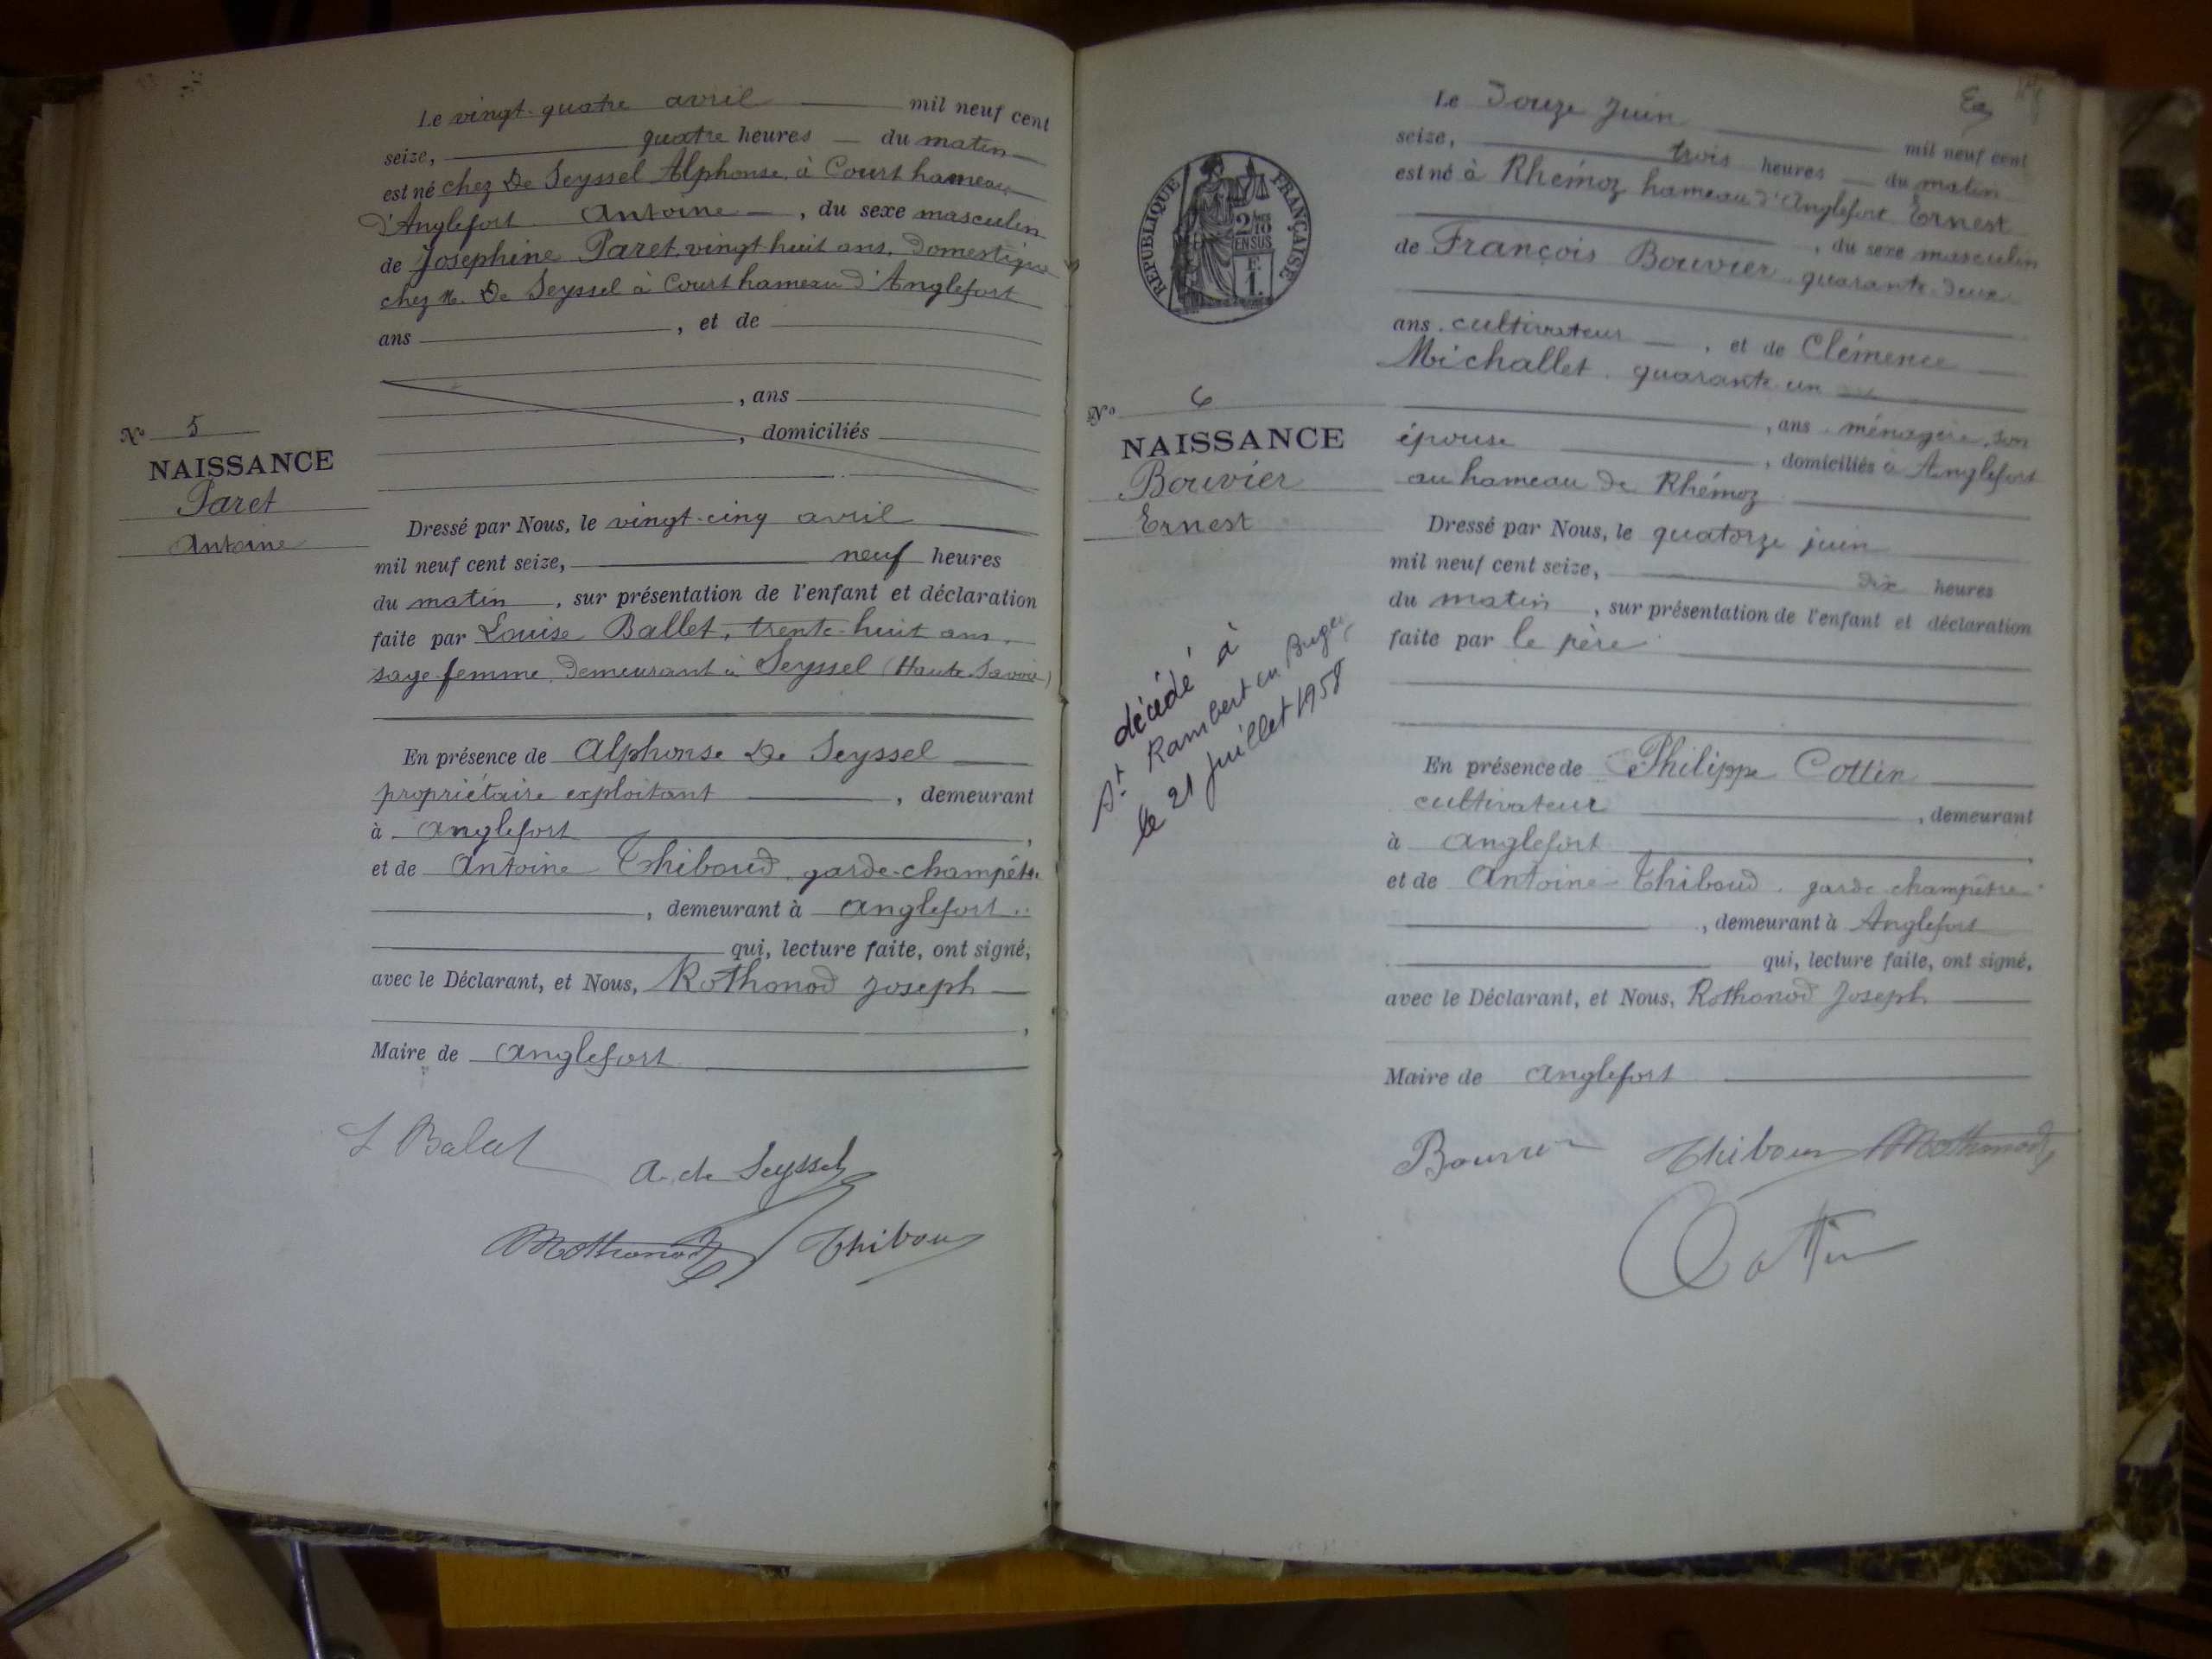 Le vingt-quatre avril mil neuf cent
seize, quatre heures du matin
est né chez De Seyssel Alphonse, à Court hameau
d'Anglefort Antoine, du sexe masculin
de Joséphine Paret, vingt-huit ans, domestique
chez M. De Seyssel à Court hameau d'Anglefort
ans, et de
, ans
, domiciliés
Nº 5
NAISSANCE
Paret
Antoine
Dressé par Nous, le vingt-cinq avril
mil neuf cent seize, neuf heures
du matin, sur présentation de l'enfant et déclaration
faite par Louise Ballet, trente-huit ans,
sage-femme, demeurant à Seyssel (Haute-Savoie)
En présence de Alphonse De Seyssel
propriétaire exploitant, demeurant
à Anglefort,
et de Antoine Thiboud, garde-champêtre
, demeurant à Anglefort
qui, lecture faite, ont signé,
avec le Déclarant, et Nous, Rothonod Joseph
,
Maire de Anglefort
A. de Seyssel
Rothonod Thiboud
Le douze juin mil neuf cent
seize, trois heures du matin
est né à Rhémoz hameau d'Anglefort Ernest
, du sexe masculin
de François Bouvier, quarante-deux
ans, cultivateur, et de Clémence
Michallet, quarante-un
, ans, ménagère, son
épouse, domiciliés à Anglefort
au hameau de Rhémoz
RÉPUBLIQUE FRANÇAISE
2/10 EN SUS
E.
1.
Nº 6
NAISSANCE
Bouvier
Ernest
décédé à
St Rambert en Bugey
le 21 juillet 1958
Dressé par Nous, le quatorze juin
mil neuf cent seize, dix heures
du matin, sur présentation de l'enfant et déclaration
faite par le père
En présence de Philippe Cottin
cultivateur, demeurant
à Anglefort,
et de Antoine Thiboud, garde champêtre
, demeurant à Anglefort
qui, lecture faite, ont signé,
avec le Déclarant, et Nous, Rothonod Joseph
Maire de Anglefort
Bouvier Thiboud Rothonod
Cottin